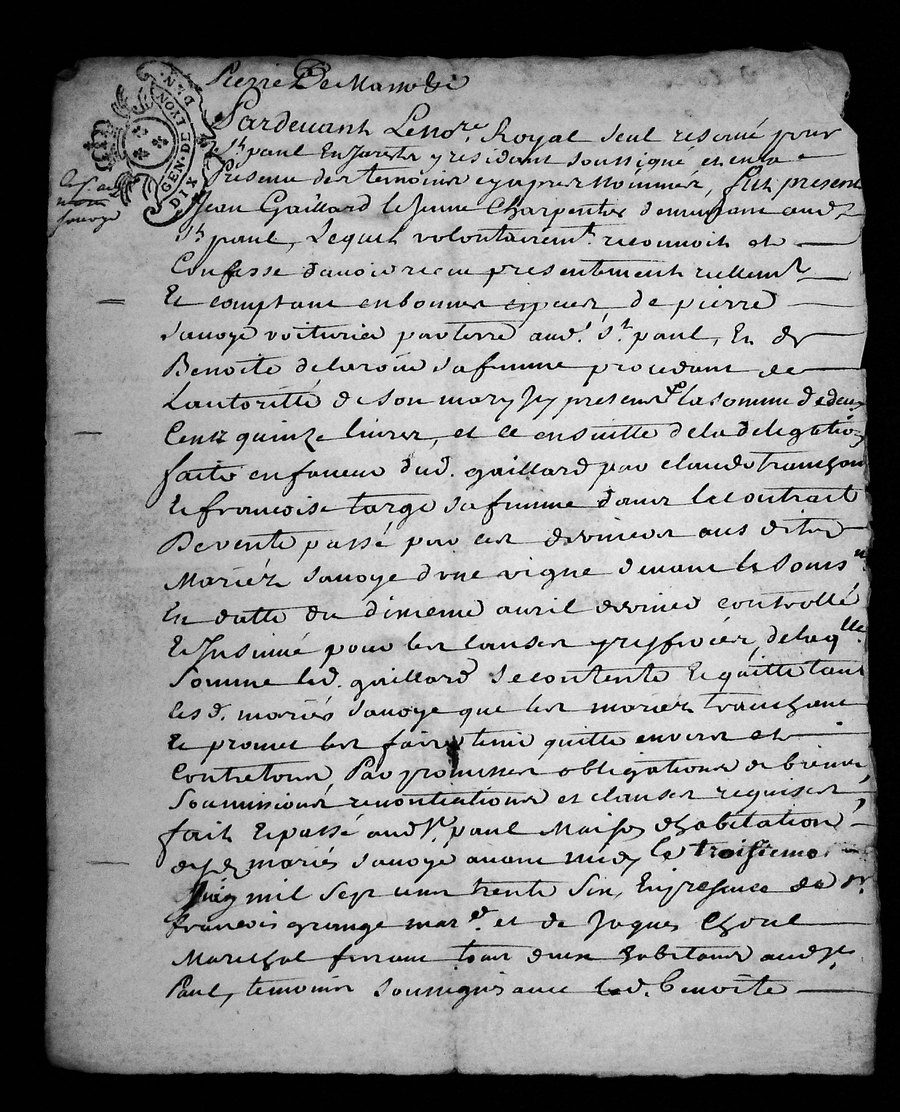 GEN. DE LYON
DIX DEN.
Pierre De
Pardevant Le no.re Royal seul reservé pour
St paul En Jarestz y residant soussigné et en la
Presence des temoins cy apres nommés, fut present
Jean Gaillard le Jeune Charpentier demeurant aud.
St paul, Lequel volontairem.t reconnoit et
Confesse d'avoir receu presentement reellem.t
Et comptant en bonnes especes de pierre
Sauvye voiturier par terre aud.t St paul, Et de
Benoite delaroire sa femme procedant de
L'autoritté de son mary Icy present la somme de deux
Cents quinze livres, et ce en suitte de la delegation
faite en faveur dud. gaillard par claude tranchan
Et francoise targe sa femme dans le contract
De vente passé par ces derniers aus dits
Mariéz Sauvye d'une vigne devant le Sous.né
En datte du dixieme avril dernier controllé
Et Insinué pour les causes y resferées, de laq.lle
Somme led. gaillard se contente Et quitte tant
les d. mariés Sauvye que les mariéz tranchant
Et promet les faire tenir quitte envers et
Contre tous Par promesses obligations de biens,
Soumissions renontiations et clauses requises,
fait Et passé aud. St. paul Maison d'habitation
desd. mariés Sauvye avant midy le troisieme
Juin mil sept cent trente six, En presence de Sr.
francois grange mar.d et de Jaques Choul
Marechal ferrant tous deux habitans aud. St
Paul, temoins soussignés avec lad. benoite